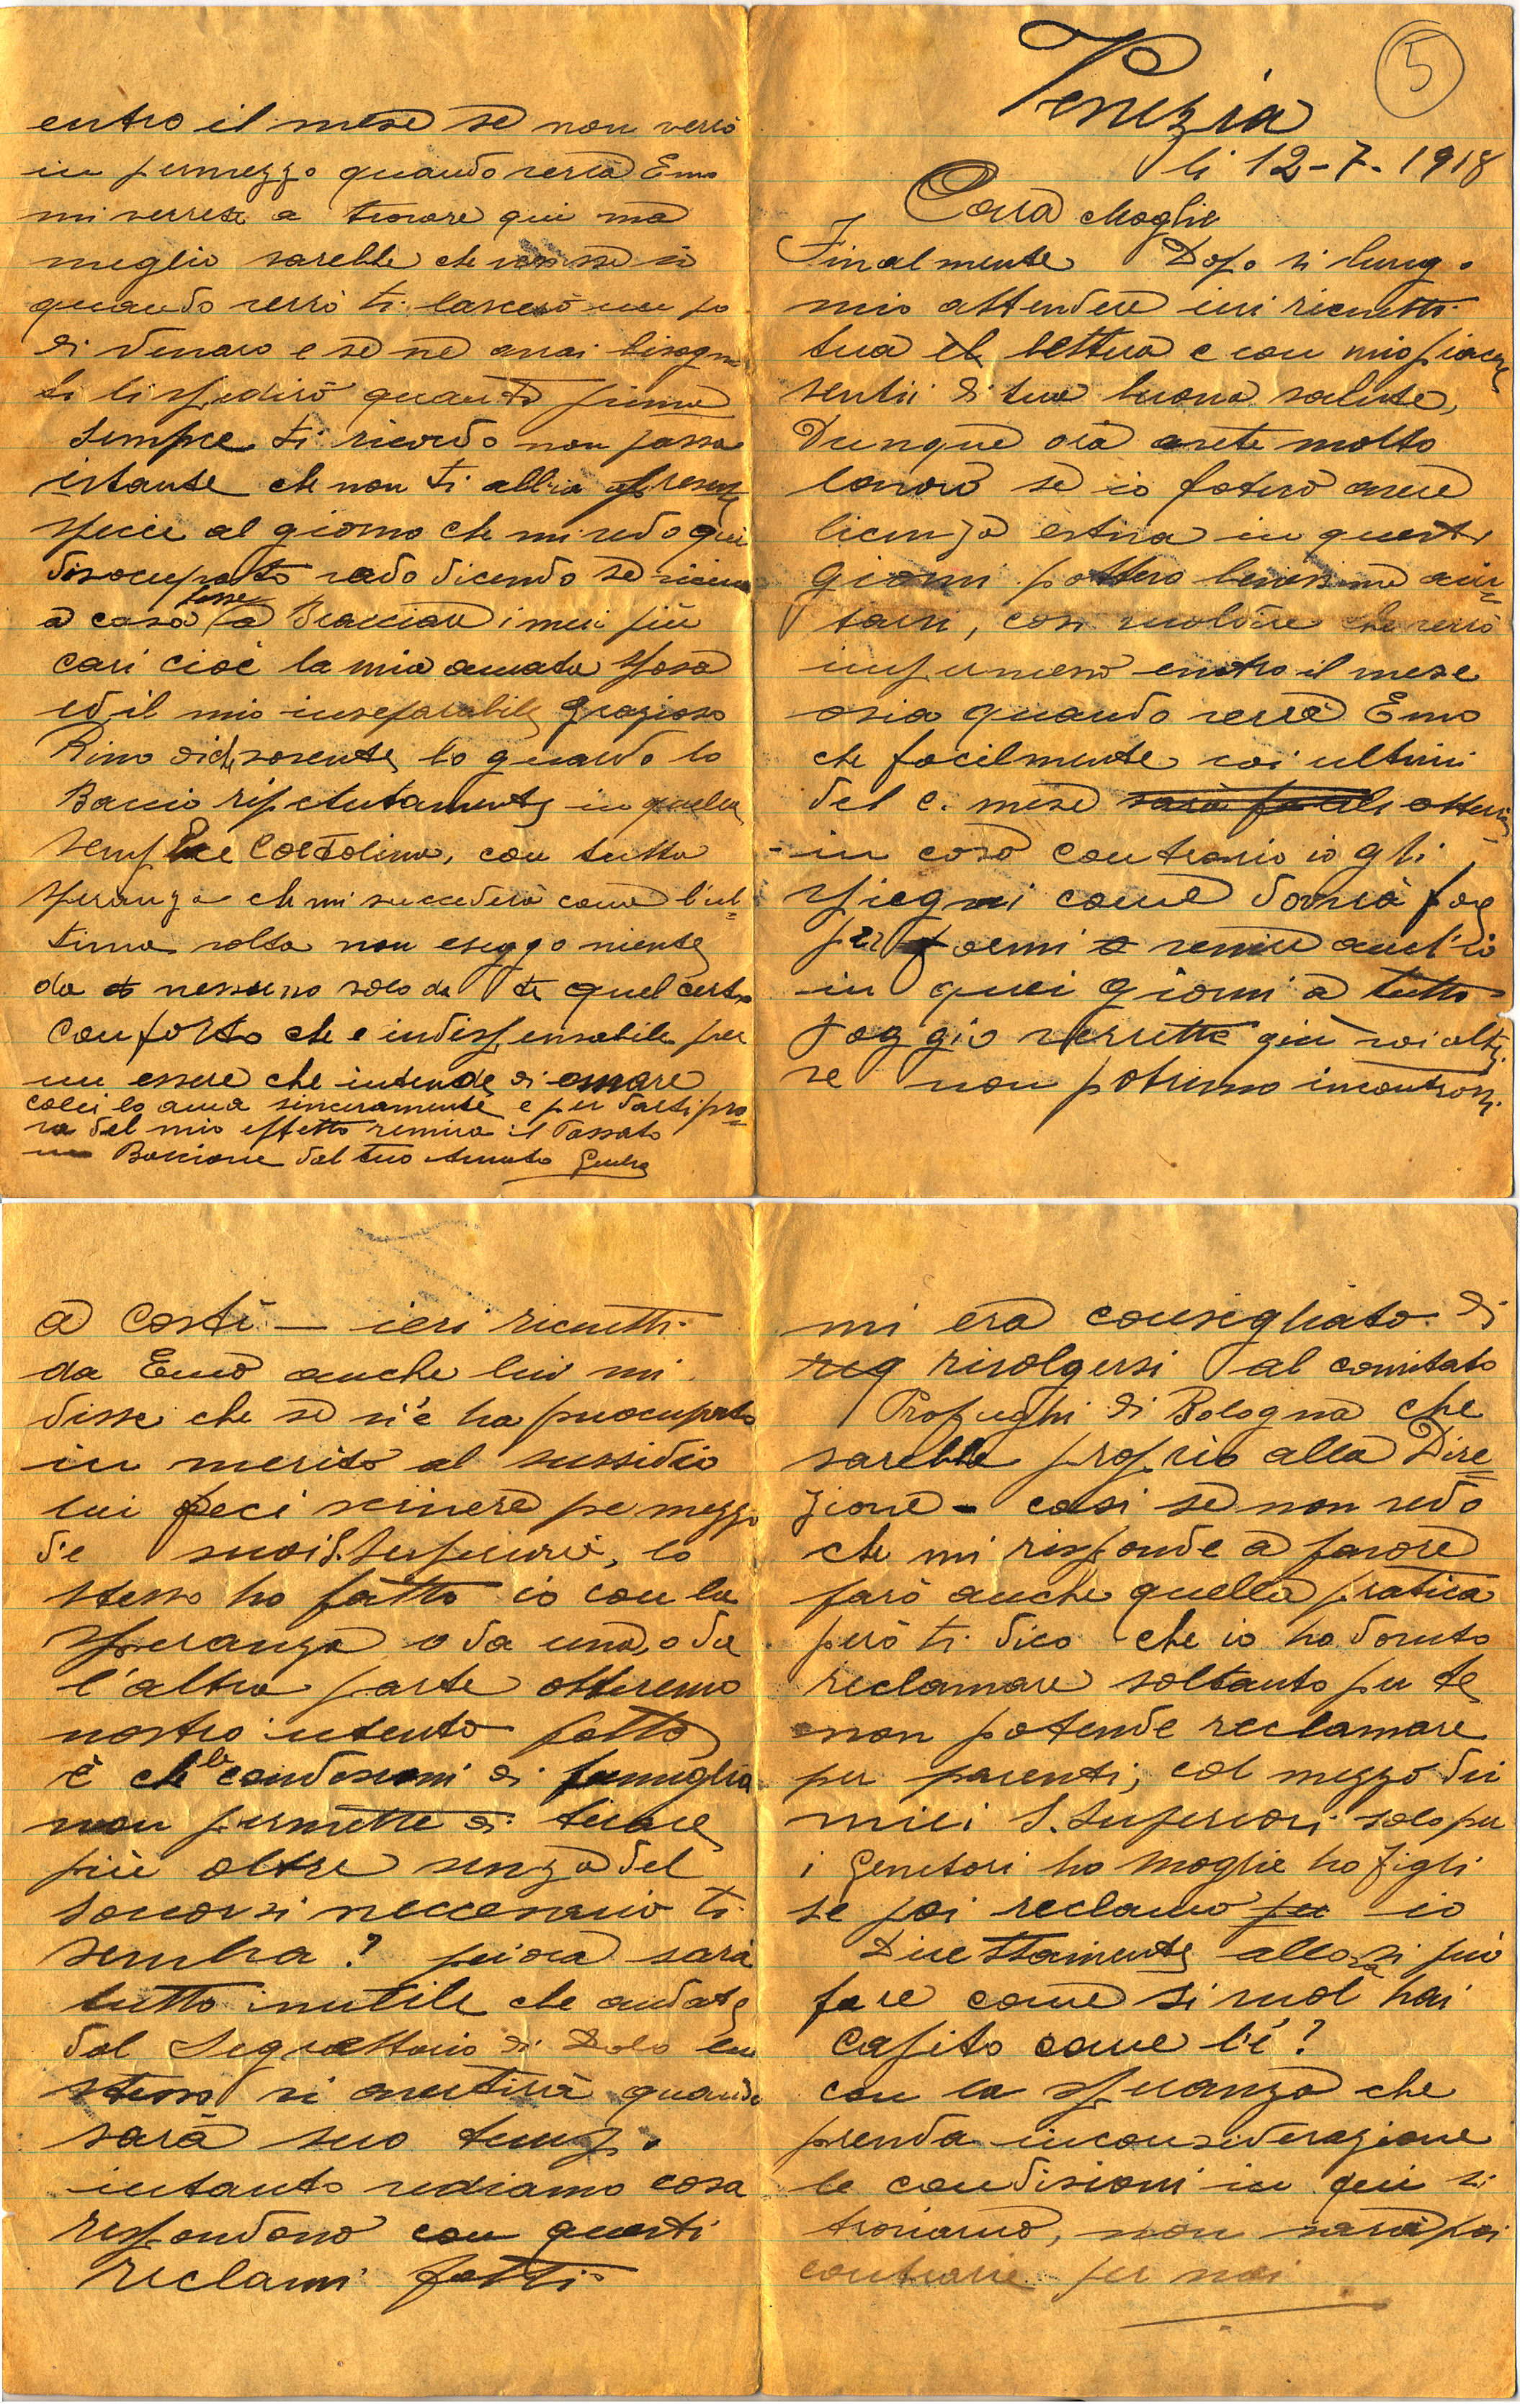 5
Venezia
li 12-7-1918
Cara Moglie
Finalmente Dopo si lungo
mio attendere ieri ricevetti
tua el lettera e con mio piacere
sentii di tua buona salute,
Dunque ora avete molto
lavoro se io poterò avere
licenza estiva in questi
giorni potterò benissimo aiu=
tarvi, così verrò
in permesso entro il mese
osia quando verrà Emo
che facilmente voi ultimi
del c. mese sarà
in caso contrario io gli
spiegai come dovrà fare
per farmi a venire anch'io
in quei giorni a tutto
poggio verrette giù voi altri
se non potremo incontrarsi
a costì — ieri ricevetti
da Emo anche lui mi
disse che se si'è ha preocupato
in merito al sussidio
lui feci scrivere pe mezzo
d'e suoi S. Superiori, lo
stesso ho fatto io con la
speranza o da una, o da
l'altra parte otteremo
nostro intento fatto
è che le condissioni di famiglia
non permette di tirare
più oltre senza del
soccorsi neccessario ti
sembra? piora sarà
tutto inutile che andate
dal Segrettario di Dolo lui
stesso vi avertirà quando
sarà suo tempo
intanto vediamo cosa
respondono con questi
reclami fatti
mi era consegliato di
reg rivolgersi al comitato
Profughi di Bologna che
sarebbe proprio alla Dire=
zione - così se non vedo
che mi risponde a favore
farò anche quella pratica
però ti dico che io ho dovuto
reclamare soltanto per te
non potende reclamare
per parenti, col mezzo dei
miei S. Superiori solo per
i genitori ho Moglie ho figli
se poi reclamo per io
Direttamente allora si può
fare come si vuol hai
capito come l'è?
con la speranza che
prenda inconsiderazione
le condisioni in qui si
troviamo, non sarà poi
contrarie per noi
entro il mese se non verrò
in permezzo quando verrà Emo
mi verrete a trovare qui ma
meglio sarebbe che venisse io
quando verrò ti lascerò un po
di denaro e se ne avrai bisogno
te li spedirò quanto prima
Sempre ti ricordo non passa
istante che non ti abbia presente
specie al giorno che mi vedo qui
disocupato vado dicendo se
a casa fosse a Bracciare i miei più
cari cioè la mia amata sposa
ed il mio inseparabile grazioso
Rino lo guardo lo
Baccio ripetutamente in quella
semplice Cartolina, con tutta
speranza che mi succederà come l'ul=
tima volta non eseggo niente
da nessuno solo da te quel certo
conforto che e indispensabile per
un essere che intende di amare
colei lo ama sinceramente e per darti pro=
va del mio effetto remira il Passato
un Baccione dal tuo